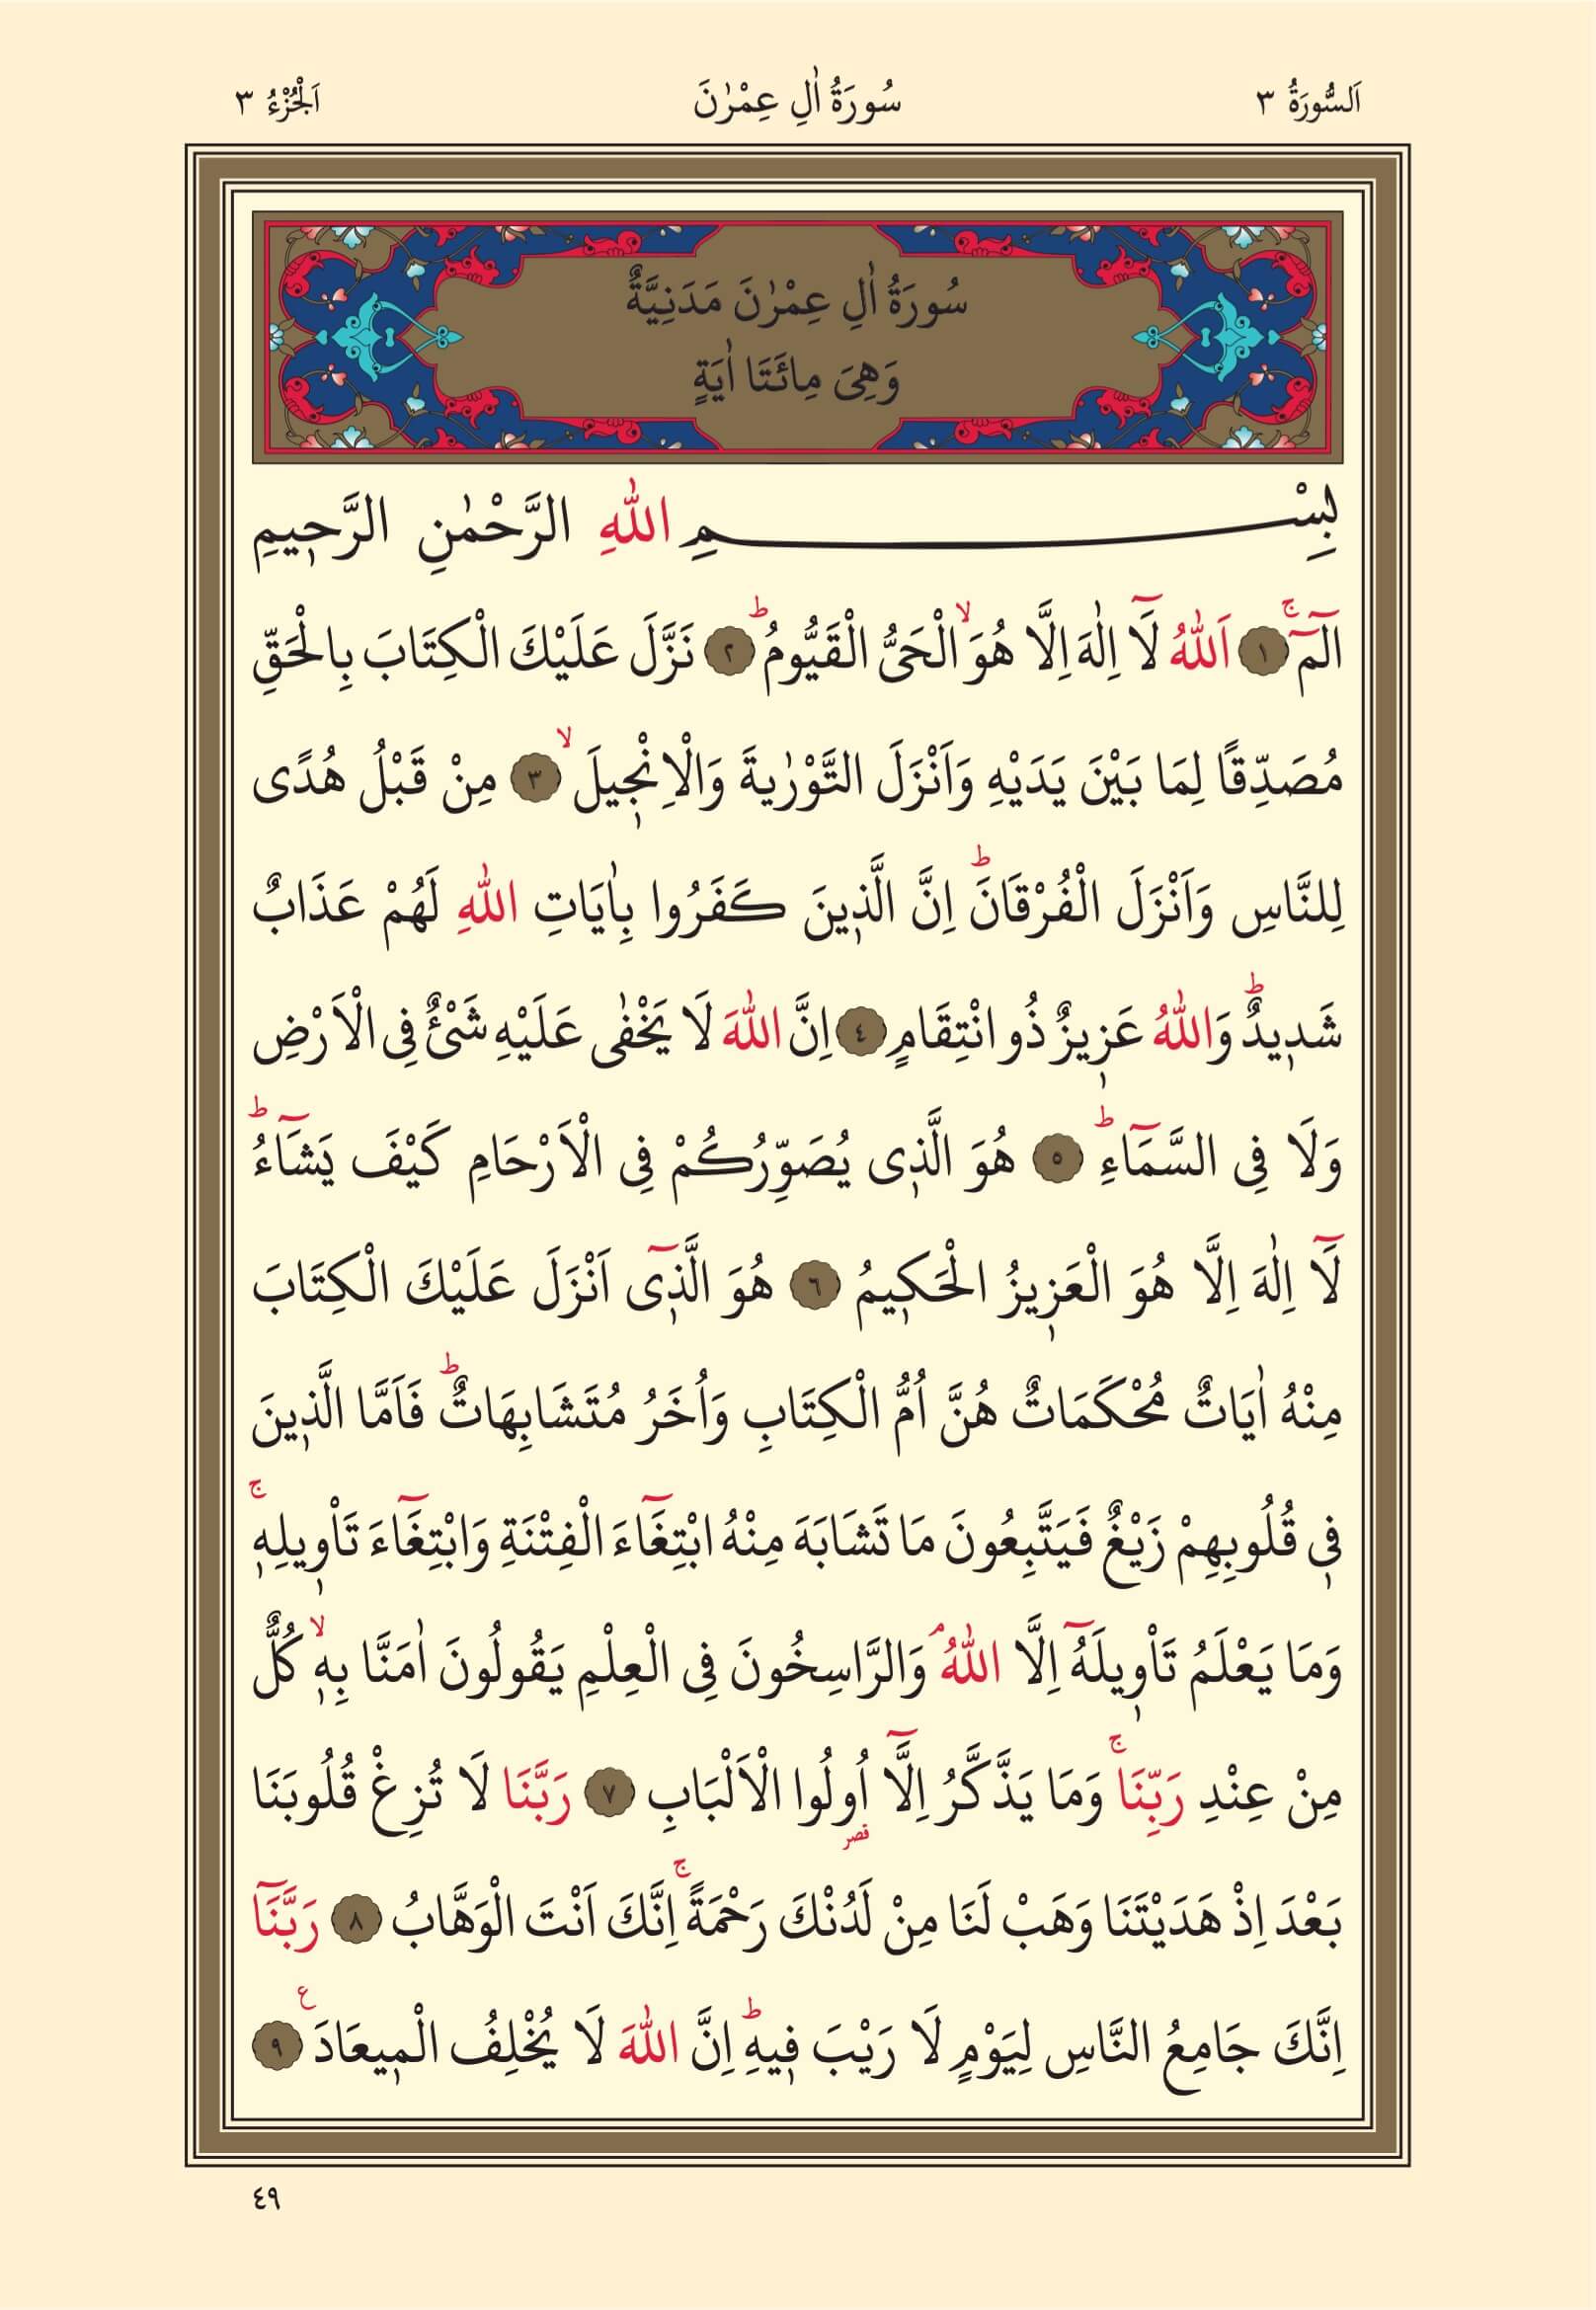 اَلسُّورَةُ ٣
سُورَةُ اٰلِ عِمْرٰنَ
اَلْجُزْءُ ٣
سُورَةُ اٰلِ عِمْرٰنَ مَدَنِيَّةٌ
وَهِىَ مِائَتَا اٰيَةٍ
بِسْــــــمِ اللّٰهِ الرَّحْمٰنِ الرَّحٖيمِ
الٓمٓۚ ١ اَللّٰهُ لَٓا اِلٰهَ اِلَّا هُوَۙ الْحَىُّ الْقَيُّومُؕ ٢ نَزَّلَ عَلَيْكَ الْكِتَابَ بِالْحَقِّ
مُصَدِّقًا لِمَا بَيْنَ يَدَيْهِ وَاَنْزَلَ التَّوْرٰيةَ وَالْاِنْجٖيلَۙ ٣ مِنْ قَبْلُ هُدًى
لِلنَّاسِ وَاَنْزَلَ الْفُرْقَانَؕ اِنَّ الَّذٖينَ كَفَرُوا بِاٰيَاتِ اللّٰهِ لَهُمْ عَذَابٌ
شَدٖيدٌؕ وَاللّٰهُ عَزٖيزٌ ذُو انْتِقَامٍ ٤ اِنَّ اللّٰهَ لَا يَخْفٰى عَلَيْهِ شَىْءٌ فِى الْاَرْضِ
وَلَا فِى السَّمَٓاءِؕ ٥ هُوَ الَّذٖى يُصَوِّرُكُمْ فِى الْاَرْحَامِ كَيْفَ يَشَٓاءُؕ
لَٓا اِلٰهَ اِلَّا هُوَ الْعَزٖيزُ الْحَكٖيمُ ٦ هُوَ الَّذٖٓى اَنْزَلَ عَلَيْكَ الْكِتَابَ
مِنْهُ اٰيَاتٌ مُحْكَمَاتٌ هُنَّ اُمُّ الْكِتَابِ وَاُخَرُ مُتَشَابِهَاتٌؕ فَاَمَّا الَّذٖينَ
فٖى قُلُوبِهِمْ زَيْغٌ فَيَتَّبِعُونَ مَا تَشَابَهَ مِنْهُ ابْتِغَٓاءَ الْفِتْنَةِ وَابْتِغَٓاءَ تَاْوٖيلِهٖۚ
وَمَا يَعْلَمُ تَاْوٖيلَهُٓ اِلَّا اللّٰهُۘ وَالرَّاسِخُونَ فِى الْعِلْمِ يَقُولُونَ اٰمَنَّا بِهٖۙ كُلٌّ
مِنْ عِنْدِ رَبِّنَاۚ وَمَا يَذَّكَّرُ اِلَّٓا اُولُوا الْاَلْبَابِ ٧ رَبَّنَا لَا تُزِغْ قُلُوبَنَا
قصر
بَعْدَ اِذْ هَدَيْتَنَا وَهَبْ لَنَا مِنْ لَدُنْكَ رَحْمَةًۚ اِنَّكَ اَنْتَ الْوَهَّابُ ٨ رَبَّنَٓا
اِنَّكَ جَامِعُ النَّاسِ لِيَوْمٍ لَا رَيْبَ فٖيهِؕ اِنَّ اللّٰهَ لَا يُخْلِفُ الْمٖيعَادَ ع ٩
٤٩